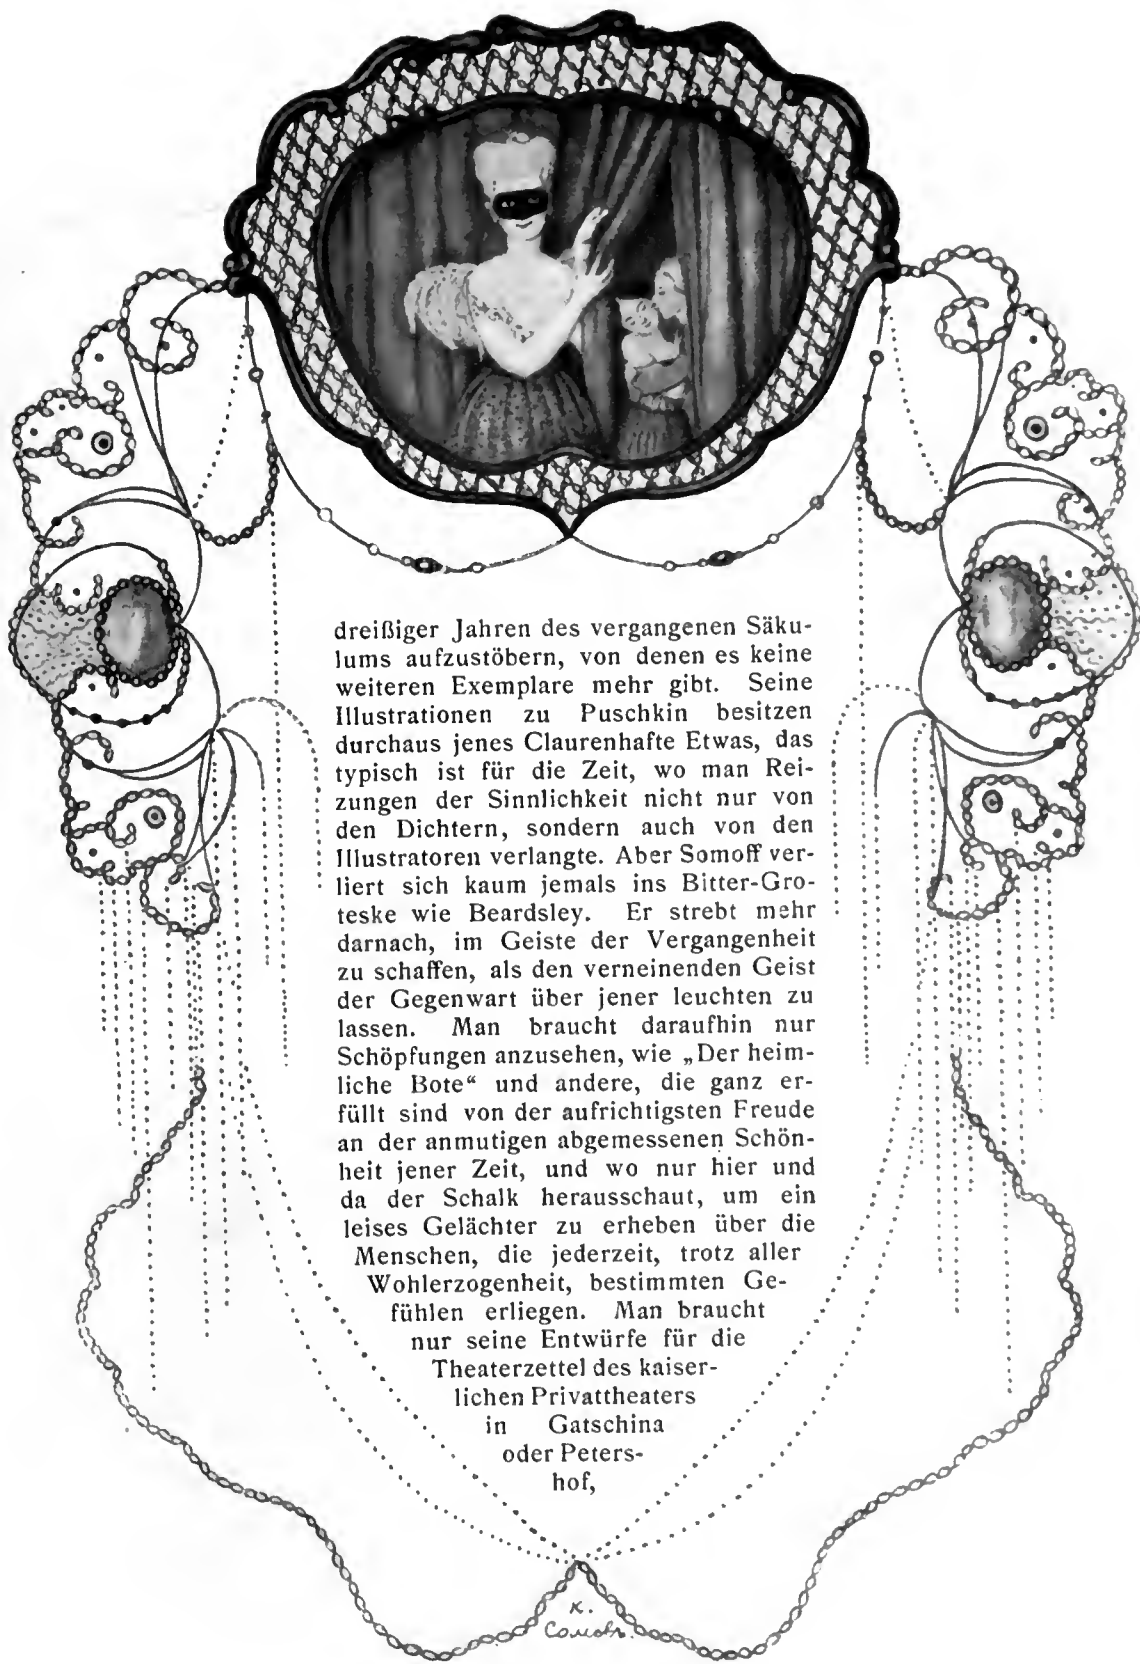 dreißiger Jahren des vergangenen Säku-
lums aufzustöbern, von denen es keine
weiteren Exemplare mehr gibt. Seine
Illustrationen zu Puschkin besitzen
durchaus jenes Claurenhafte Etwas, das
typisch ist für die Zeit, wo man Rei-
zungen der Sinnlichkeit nicht nur von
den Dichtern, sondern auch von den
Illustratoren verlangte. Aber Somoff ver-
liert sich kaum jemals ins Bitter-Gro-
teske wie Beardsley. Er strebt mehr
darnach, im Geiste der Vergangenheit
zu schaffen, als den verneinenden Geist
der Gegenwart über jener leuchten zu
lassen. Man braucht daraufhin nur
Schöpfungen anzusehen, wie „Der heim-
liche Bote“ und andere, die ganz er-
füllt sind von der aufrichtigsten Freude
an der anmutigen abgemessenen Schön-
heit jener Zeit, und wo nur hier und
da der Schalk herausschaut, um ein
leises Gelächter zu erheben über die
Menschen, die jederzeit, trotz aller
Wohlerzogenheit, bestimmten Ge-
fühlen erliegen. Man braucht
nur seine Entwürfe für die
Theaterzettel des kaiser-
lichen Privattheaters
in Gatschina
oder Peters-
hof,
К.
Сомовъ.